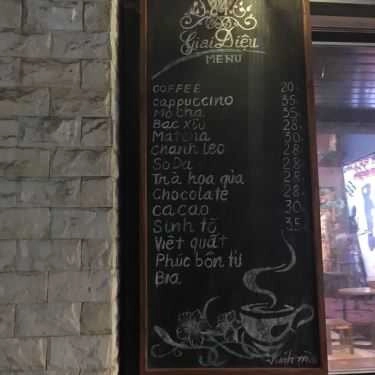 84
Giai Điệu
MENU
COFFEE 20
Cappuccino 35
Mocha 35
Bạc xỉu 28
Matcha 30
Chanh leo 28
SoDa 28
Trà hoa quả 28
Chocolate 28
cacao 30
Sinh tố 35
Việt quất
Phúc bồn tử
Bia